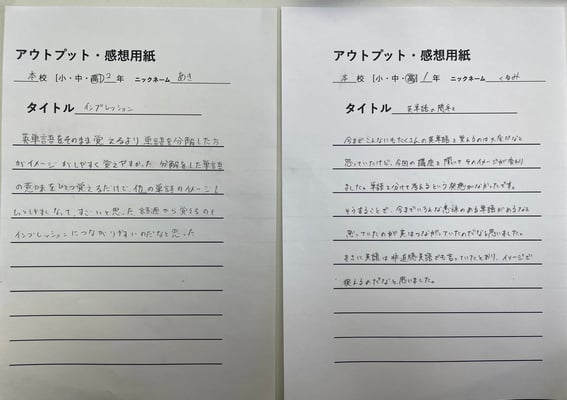 アウトプット・感想用紙
本校 [小・中・高] 2年 ニックネーム あき
タイトル インプレッション
英単語をそのまま覚えるより単語を分解した方
がイメージもしやすく覚えやすかった 分解をした単語
の意味をひとつ覚えるだけで、他の単語のイメージも
しやすくなって、すごいと思った 語源から覚えるのも
インプレッションにつながりやすいのだなと思った
アウトプット・感想用紙
本校 [小・中・高] 1年 ニックネーム くるみ
タイトル 英単語の簡単さ
今までこんなにもたくさんの英単語を覚えるのは大変だなと
思っていたけど、今回の講座を聞いてそのイメージが変わり
ました。単語を分けて考えるという発想がなかったです。
そうすることで、今までいろんな意味のある単語があるなと
思っていたのが実はつながっていたのだなと思いました。
まさに英語は 英語でも言っていたとおり、イメージで
捉えるのだなと思いました。